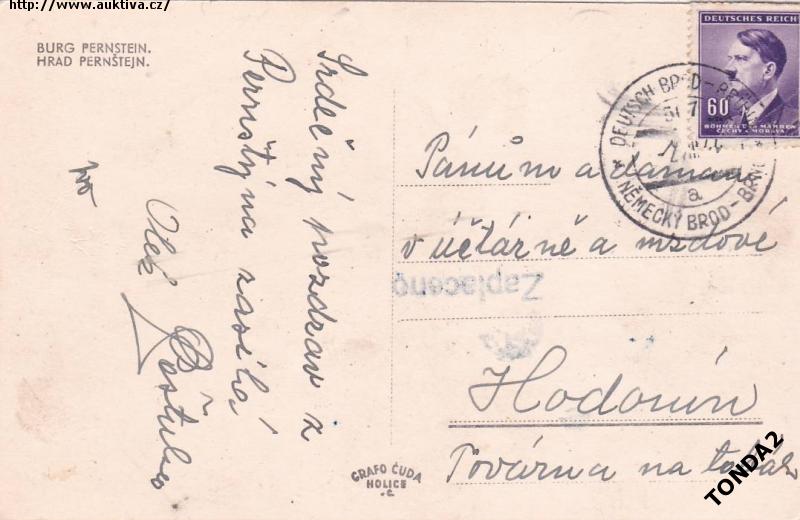 http://www.auktiva.cz/
BURG PERNSTEIN.
HRAD PERNŠTEJN.
Srdečný pozdrav z
Pernštýna zasílá
DEUTSCHES REICH
60
BÖHMEN UND MÄHREN
ČECHY A MORAVA
DEUTSCH BROD –
a
NĚMECKÝ BROD – BRNO
Pánům a dámám
v účtárně a mzdové
Zaplaceno
Hodonín
Továrna na tabák
GRAFO ČUDA
HOLICE
TONDA2